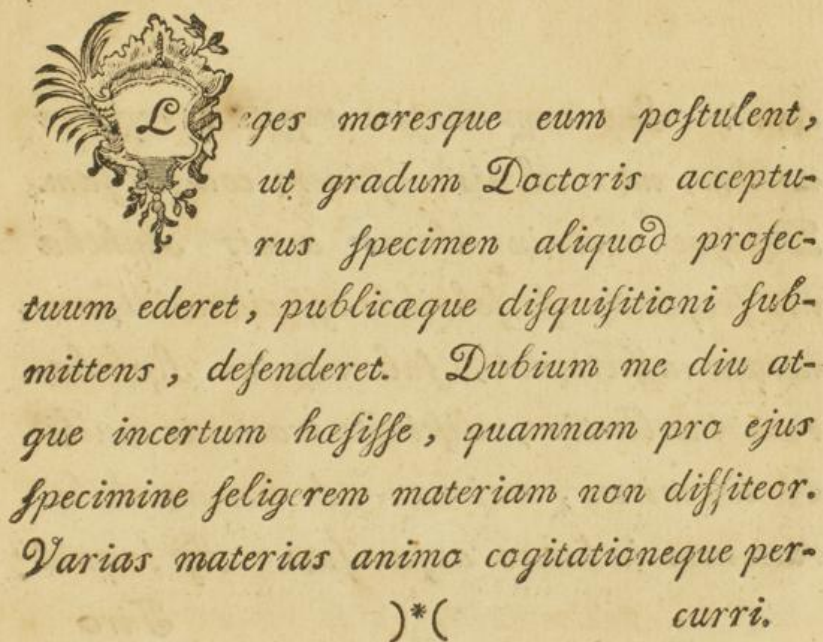 Leges moresque eum poſtulent,
ut gradum Doctoris acceptu-
rus ſpecimen aliquod profec-
tuum ederet, publicæque diſquiſitioni ſub-
mittens, defenderet. Dubium me diu at-
que incertum hæſiſſe, quamnam pro ejus
ſpecimine ſeligerem materiam non diffiteor.
Varias materias animo cogitationeque per-
)*( curri.